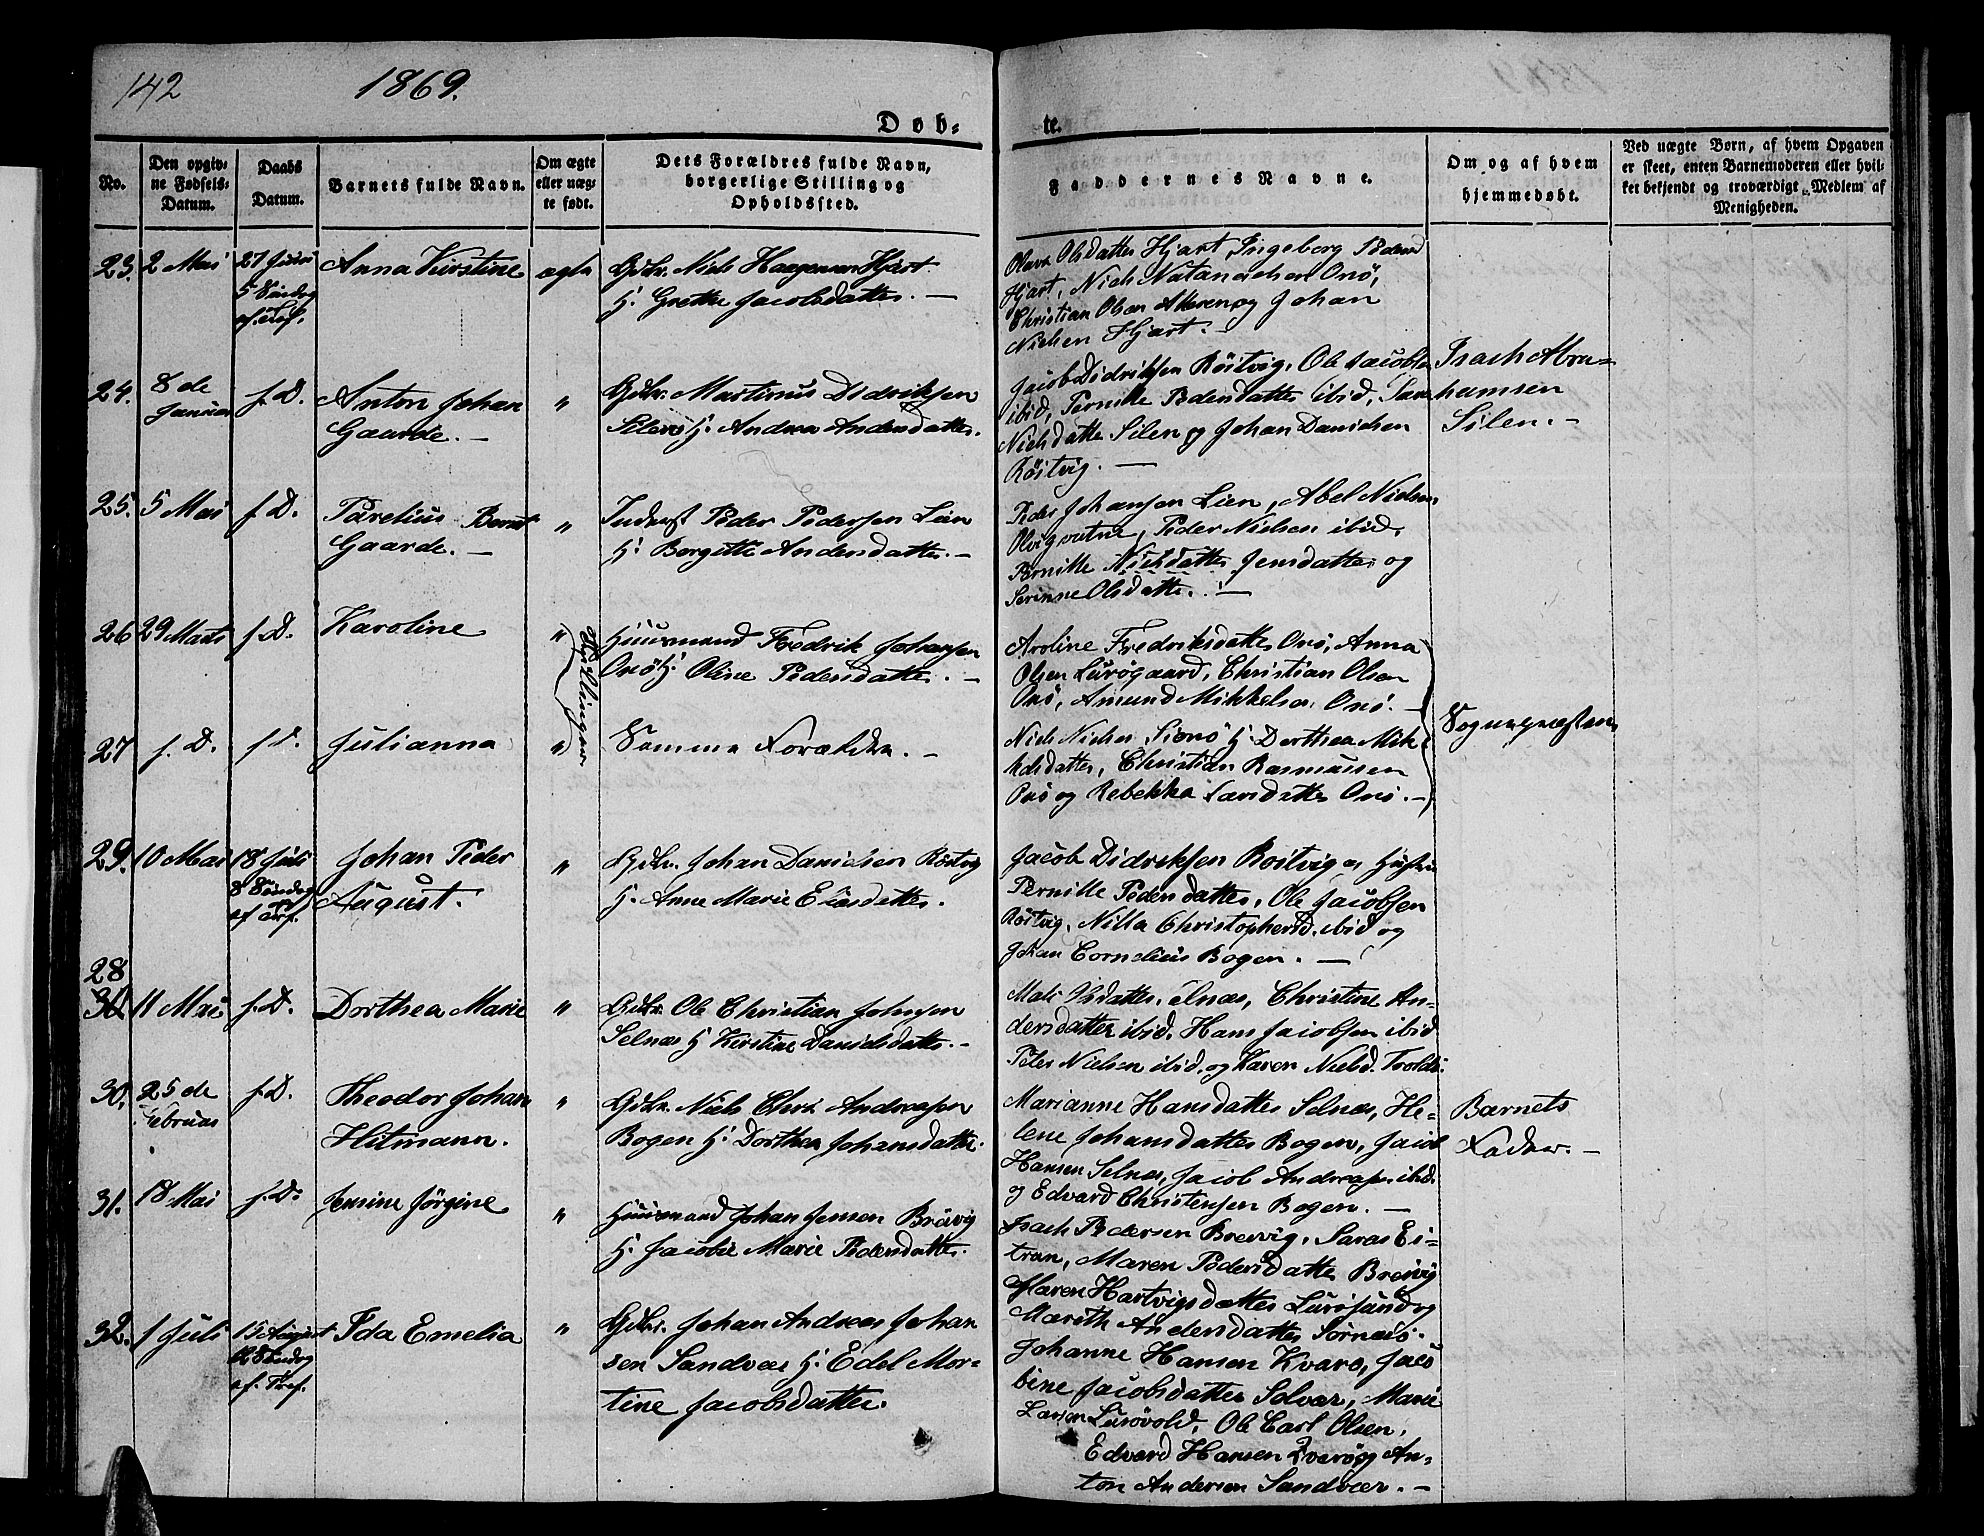 142
1869.
Døb-
te.
No.
Den opgiv-
ne Fødsels-
Datum.
Daabs
Datum.
Barnets fulde Navn.
Om ægte
eller uæg-
te født.
Dets Forældres fulde Navn,
borgerlige Stilling og
Opholdssted.
Faddernes Navne.
Om og af hvem
hjemmedøbt.
Ved uægte Børn, af hvem Opgaven
er skeet, enten Barnemoderen eller hvil-
ket bekjendt og troværdigt Medlem af
Menigheden.
23. 2 Mai
27 Juni
5 Søndag
ef. Tref.
Anna Kirstine
ægte
Gdbr. Niels Haagensen Hjart
H. Grethe Jacobsdatter. —
Olava Olsdatter Hjart, Ingeborg Peders
Hjart, Niels Natanielsen Onö,
Christian Olsen Akeren og Johan
Nielsen Hjart. —
24.
8 de
Januar
f. D.
Anton Johan
Gaarde. —
"
Gdbr. Martinus Didriksen
Silen H. Andrea Andersdatter.
Jacob Didriksen Röitvig, Ole Jacobsen
ibid, Pernille Pedersdatter ibid, Sara
Nielsdatter Silen og Johan Danielsen
Röitvig. —
Isach Abra-
hamsen
Silen. —
25. 5 Mai
f. D.
Parelius Bernt
Gaarde. —
"
Inderst Peder Pedersen Lien
H. Borgitte Andersdatter. —
Peder Johansen Lien, Abel Nielsen
Olvigvatne, Peder Nielsen ibid.
Pernille Nielsdatter Jensdatter og
Serinne Olsdatter. —
26 29 Marts
f. D.
Karoline
"
Tvillinger
Huusmand Fredrik Johansen
Onö H. Oline Pedersdatter. —
Aroline Fredriksdatter Onö, Anna
Olsen Luröegaard, Christian Olsen
Onö, Amund Mikkelsen Onö. —
Sognepræsten
27
f. D.
f. D.
Julianna
"
Samme Forældre. —
Niels Nielsen Sionö H. Dorthea Mik-
kelsdatter, Christian Rasmussen
Onö og Rebekka Larsdatter Onö. —
29. 10 Mai
18 Juli
8 Søndag
ef. Tref.
Johan Peder
August.
"
Gdbr. Johan Danielsen Röitvig
H. Anne Marie Eliasdatter.
Jacob Didriksen Roitvig og Hustru
Pernille Pedersdatter, Ole Jacobsen
Röitvig, Nilla Christopherd. ibid og
Johan Cornelius Bogen. —
28
30. 11 Mai
f. D.
Dorthea Marie
"
Gdbr. Ole Christian Johnsen
Selnæs H. Kirstine Danielsdatter. —
Mali Olsdatter Selnæs, Christine An-
dersdatter ibid. Hans Jacobsen ibid
Peter Nielsen ibid. og Karen Nielsd.
30.
25 de
Februar
f. D.
Theodor Johan
Hitmann.
"
Gdbr. Niels Chr. Andreasen
Bogen H. Dorthea Johansdatter.
Marianne Hansdatter Selnæs, He-
lene Johansdatter Bogen, Jacob
Hansen Selnæs, Jacob Andreasen ibid.
og Edvard Christensen Bogen. —
Barnets
Fader. —
31. 18 Mai
f. D.
Jensine Jörgine
"
Huusmand Johan Jensen Brävig
H. Jacobie Marie Pedersdatter.
Isach Pedersen Breivig, Saras Ei-
tran, Maren Pedersdatter Breivig
Maren Hartvigsdatter Lurösund og
Marith Andersdatter Sörnæs.
32. 1 Juli
15 August
12 Søndag
ef. Tref.
Ida Emelia
"
Gdbr. Johan Andreas Johan
sen Sandvær H. Edel Mor-
tine Jacobsdatter.
Johanne Hansen Kvarö, Jaco-
bine Jacobsdatter Selvær, Marie
Larsen Lurövold, Ole Carl Olsen,
Edvard Hansen Kvarö og An-
ton Andersen Sandvær. —